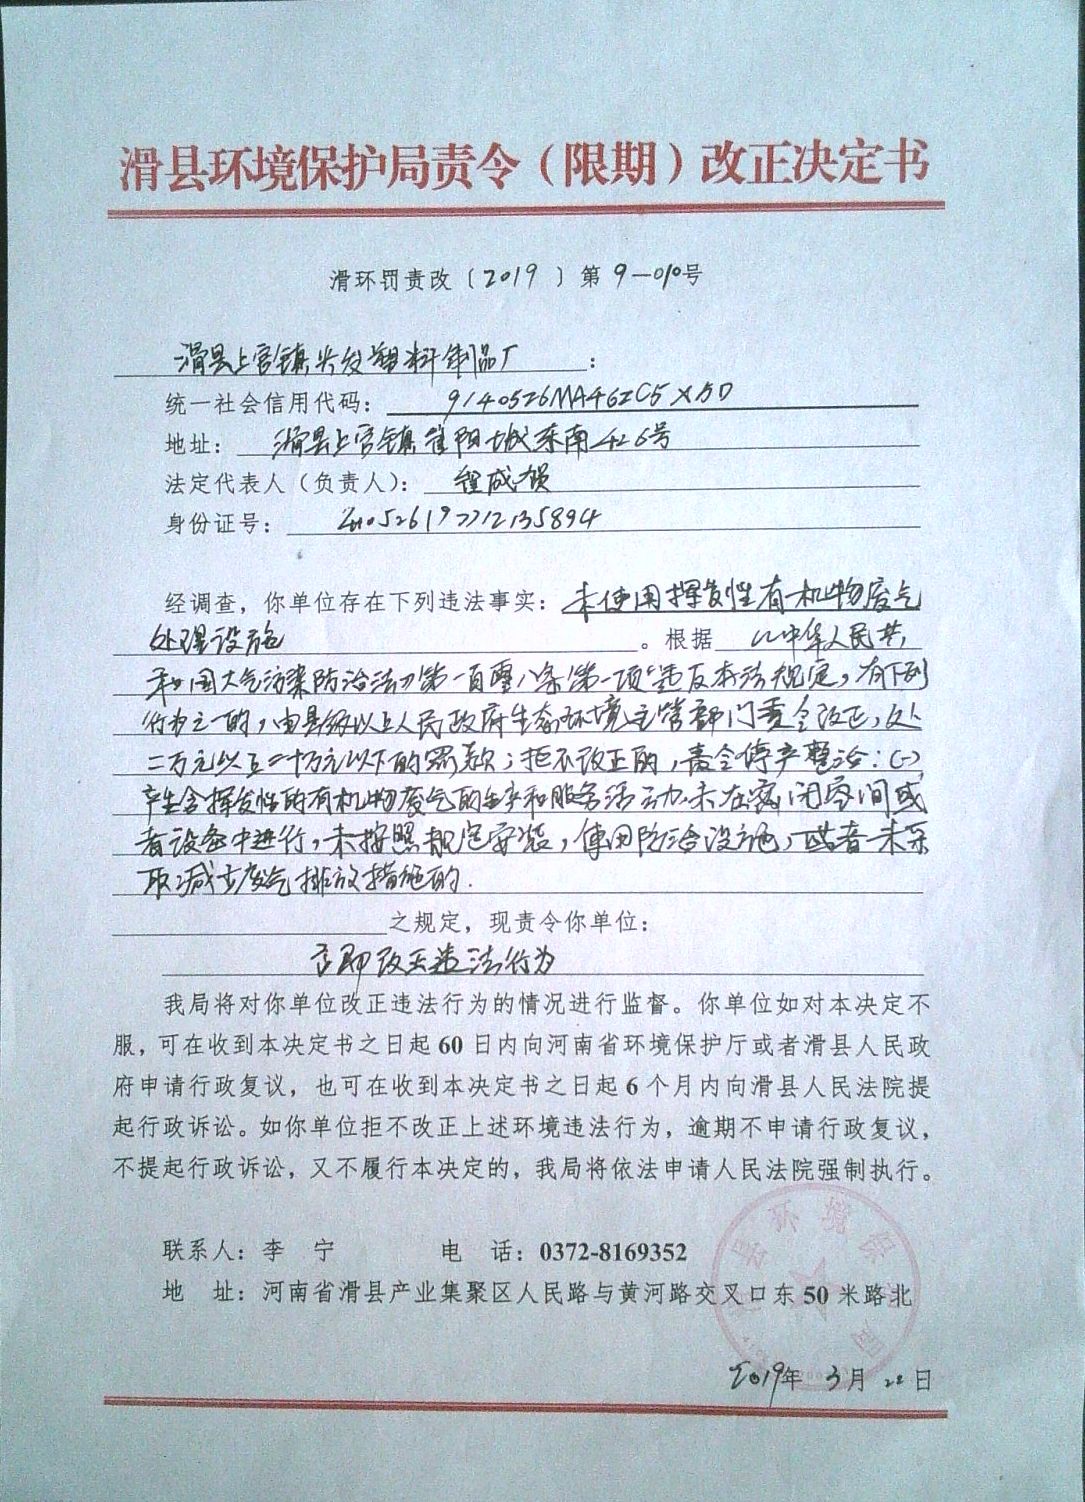 滑县环境保护局责令（限期）改正决定书
滑环罚责改〔2019〕第9—010号
滑县上官镇兴发塑料制品厂：
统一社会信用代码：
地址：滑县上官镇崔阳城东南426号
法定代表人（负责人）：程成贺
身份证号：
经调查，你单位存在下列违法事实：未使用挥发性有机物废气
处理设施。根据《中华人民共
和国大气污染防治法》第一百零八条第一项“违反本法规定，有下列
行为之一的，由县级以上人民政府生态环境主管部门责令改正，处
二万元以上二十万元以下的罚款；拒不改正的，责令停产整治：（一）
产生含挥发性的有机物废气的生产和服务活动，未在密闭空间或
者设备中进行，未按照规定安装，使用防治设施，或者未采
取减少废气排放措施的.
之规定，现责令你单位：
立即改正违法行为
我局将对你单位改正违法行为的情况进行监督。你单位如对本决定不
服，可在收到本决定书之日起60日内向河南省环境保护厅或者滑县人民政
府申请行政复议，也可在收到本决定书之日起6个月内向滑县人民法院提
起行政诉讼。如你单位拒不改正上述环境违法行为，逾期不申请行政复议，
不提起行政诉讼，又不履行本决定的，我局将依法申请人民法院强制执行。
联系人：李 宁 电 话：0372-8169352
地 址：河南省滑县产业集聚区人民路与黄河路交叉口东50米路北
2019年3月22日